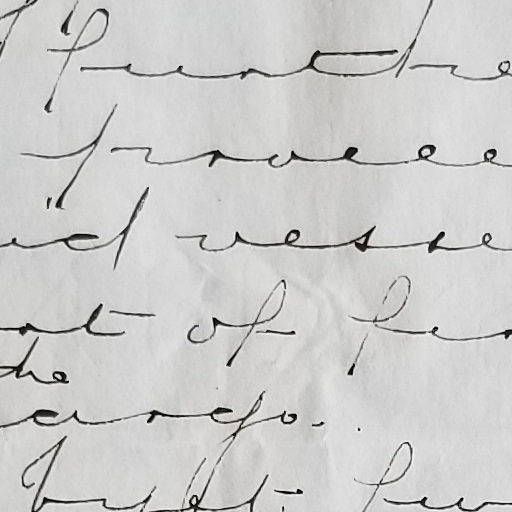 furthe
procee
id vesse
nt of fur
the
cargo.